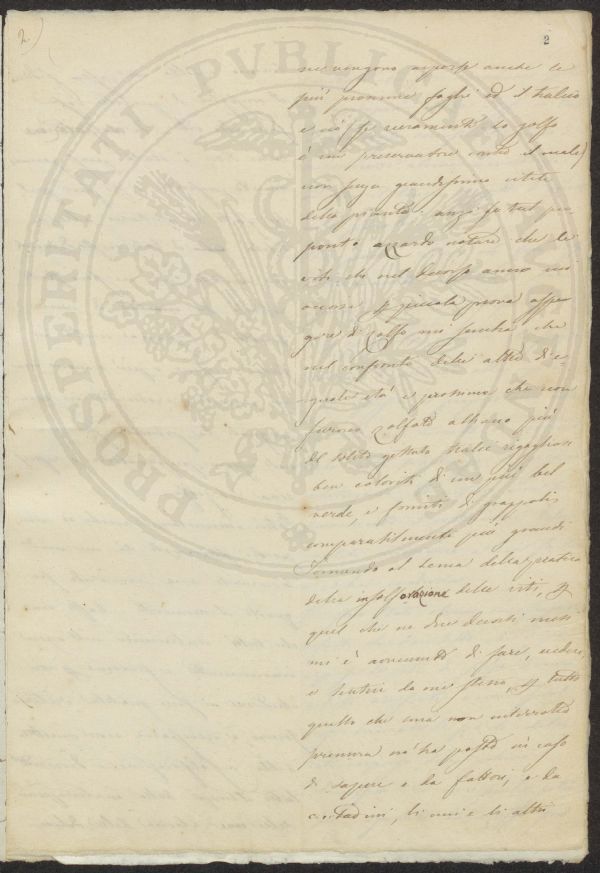 2.)
2
PROSPERITATI PUBLICAE AUGENDAE
ne vengono asperse anche le
più prossime foglie ed il tralcio
e così se veramente lo zolfo
è un preservativo contro il male)
con sua grandissima utilità
della pianta. anzi su tal pro-
posito azzardo notare che le
viti che nel decorso anno mi
occorse per piccola prova asper-
gere di Zolfo mi sembra che
nel confronto delle altre di e-
guale età e prossime che non
furono zolfate abbiano più
del solito gettato tralci rigogliosi
ben coloriti di un più bel
verde, e forniti di grappoli
comparativamente più grandi
Tornando al tema della pratica
della insolforazione delle viti, per
quel che ne dicono diversi mesi
mi è avvenuto di fare, vedere
e sentire da me stesso, per tutto
quello che una non interrotta
premura m'ha posto in caso
di sapere e da fattori, e da
contadini, li uni e li altri